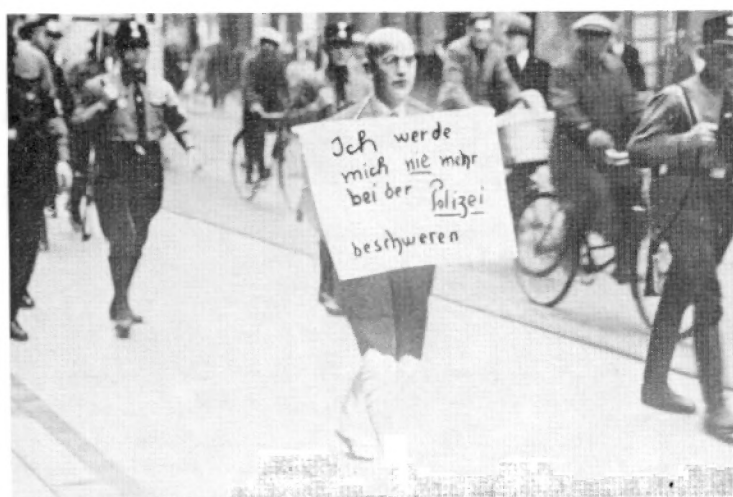 Ich werde
mich nie mehr
bei der Polizei
beschweren